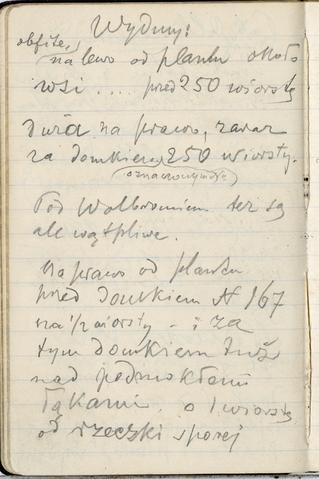 Wydmy:
obfite, na lewo od plantu około
wsi .... przed 250 wiorstą
Duża na prawo, zaraz
za domkiem 250 wiorsty.
Pod Wolbromiem też są
ale wątpliwe.
Na prawo od plantu
przed domkiem N 167
na 1/2 wiorsty - i za
tym domkiem tuż
nad podmokłemi
łąkami. o 1 wiorstę
od rzeczki sporej